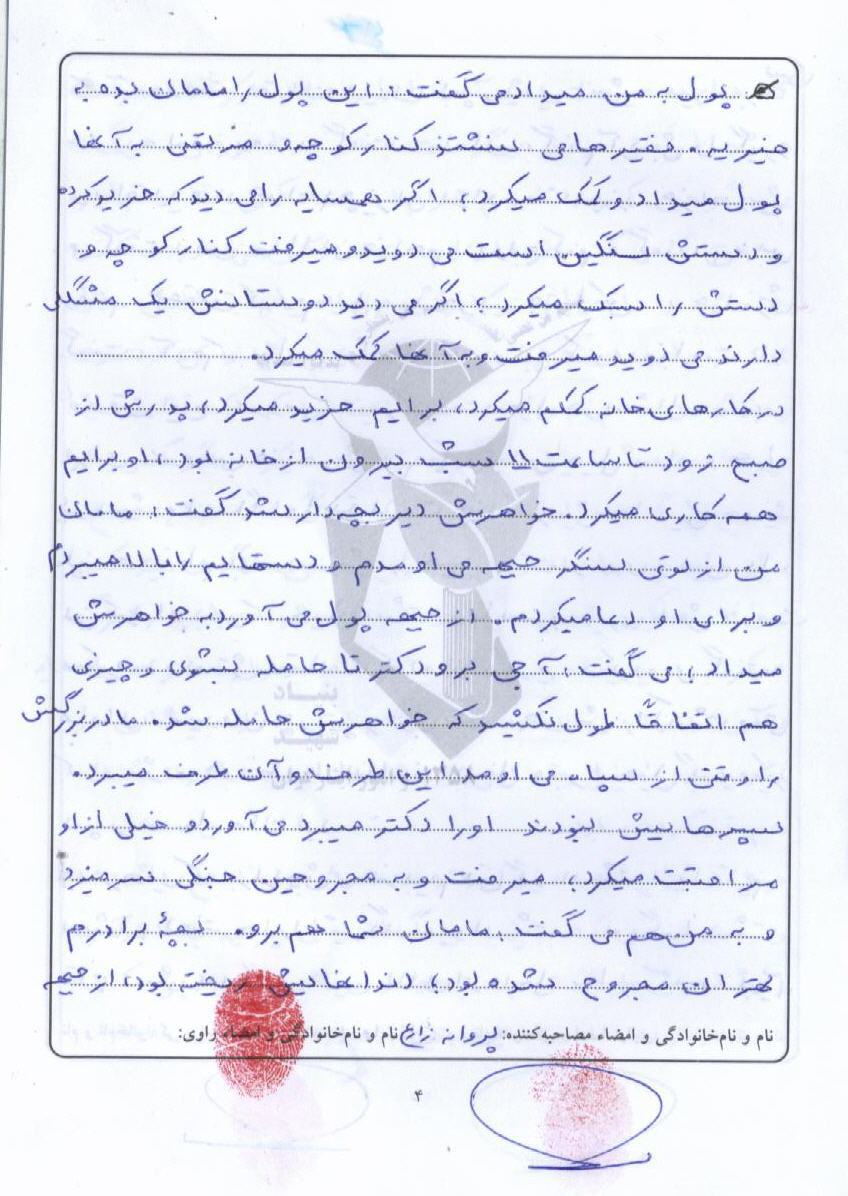 پول به من میداد می گفت: این پول را مامان بده به
خیریه. فقیرها می نشتند کنار کوچه و به آنها
پول میداد و کمک میکرد، اگر همسایه را می دید که خرید کرده
و دستش سنگین است می دوید و میرفت کنار کوچه و
دستش را سبک میکرد، اگر می دید دوستانش یک مشکلی
دارند می دوید میرفت و به آنها کمک میکرد.
در کارهای خانه کمکم میکرد، برایم خرید میکرد، پدرش از
صبح زود تا ساعت ۱۱ شب بیرون از خانه بود، او برایم
همه کاری میکرد. خواهرش دیر بچه دار شد گفت: مامان
من از توی سنگر جبهه می اومدم و دستهایم را بالا میبردم
و برای او دعا میکردم. از جبهه پول می آورد به خواهرش
میداد، می گفت: آجی برو دکتر تا حامله بشوی و چیزی
هم اتفاقاً طول نکشید که خواهرش حامله شد. مادربزرگش
را وقتی از سپاه می اومد این طرف و آن طرف میبرد.
پسرهایش نبودند او را دکتر میبرد می آورد و خیلی از او
مراقبت میکرد، میرفت و به مجروحین جنگی سر میزد
و به من هم می گفت: مامان شما هم برو. بچهٔ برادرم
تهران مجروح شده بود، دندانهایش ریخته بود، از جبهه
نام و نام‌خانوادگی و امضاء مصاحبه‌کننده: پروانه زارع نام و نام‌خانوادگی و امضاء راوی:
بنیاد
شهید
۴